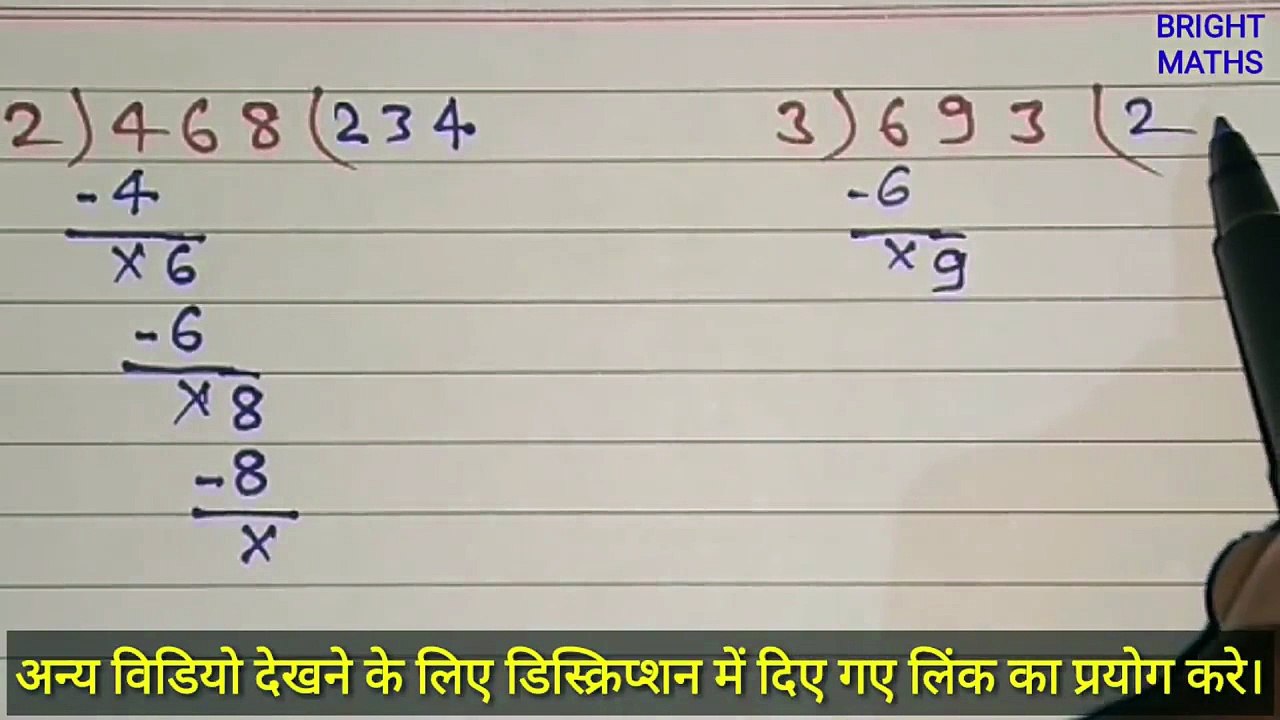 BRIGHT
MATHS
2 ) 4 6 8 ( 2 3 4
- 4
x 6
- 6
x 8
- 8
x
3 ) 6 9 3 ( 2
- 6
x 9
अन्य विडियो देखने के लिए डिस्क्रिप्शन में दिए गए लिंक का प्रयोग करे।